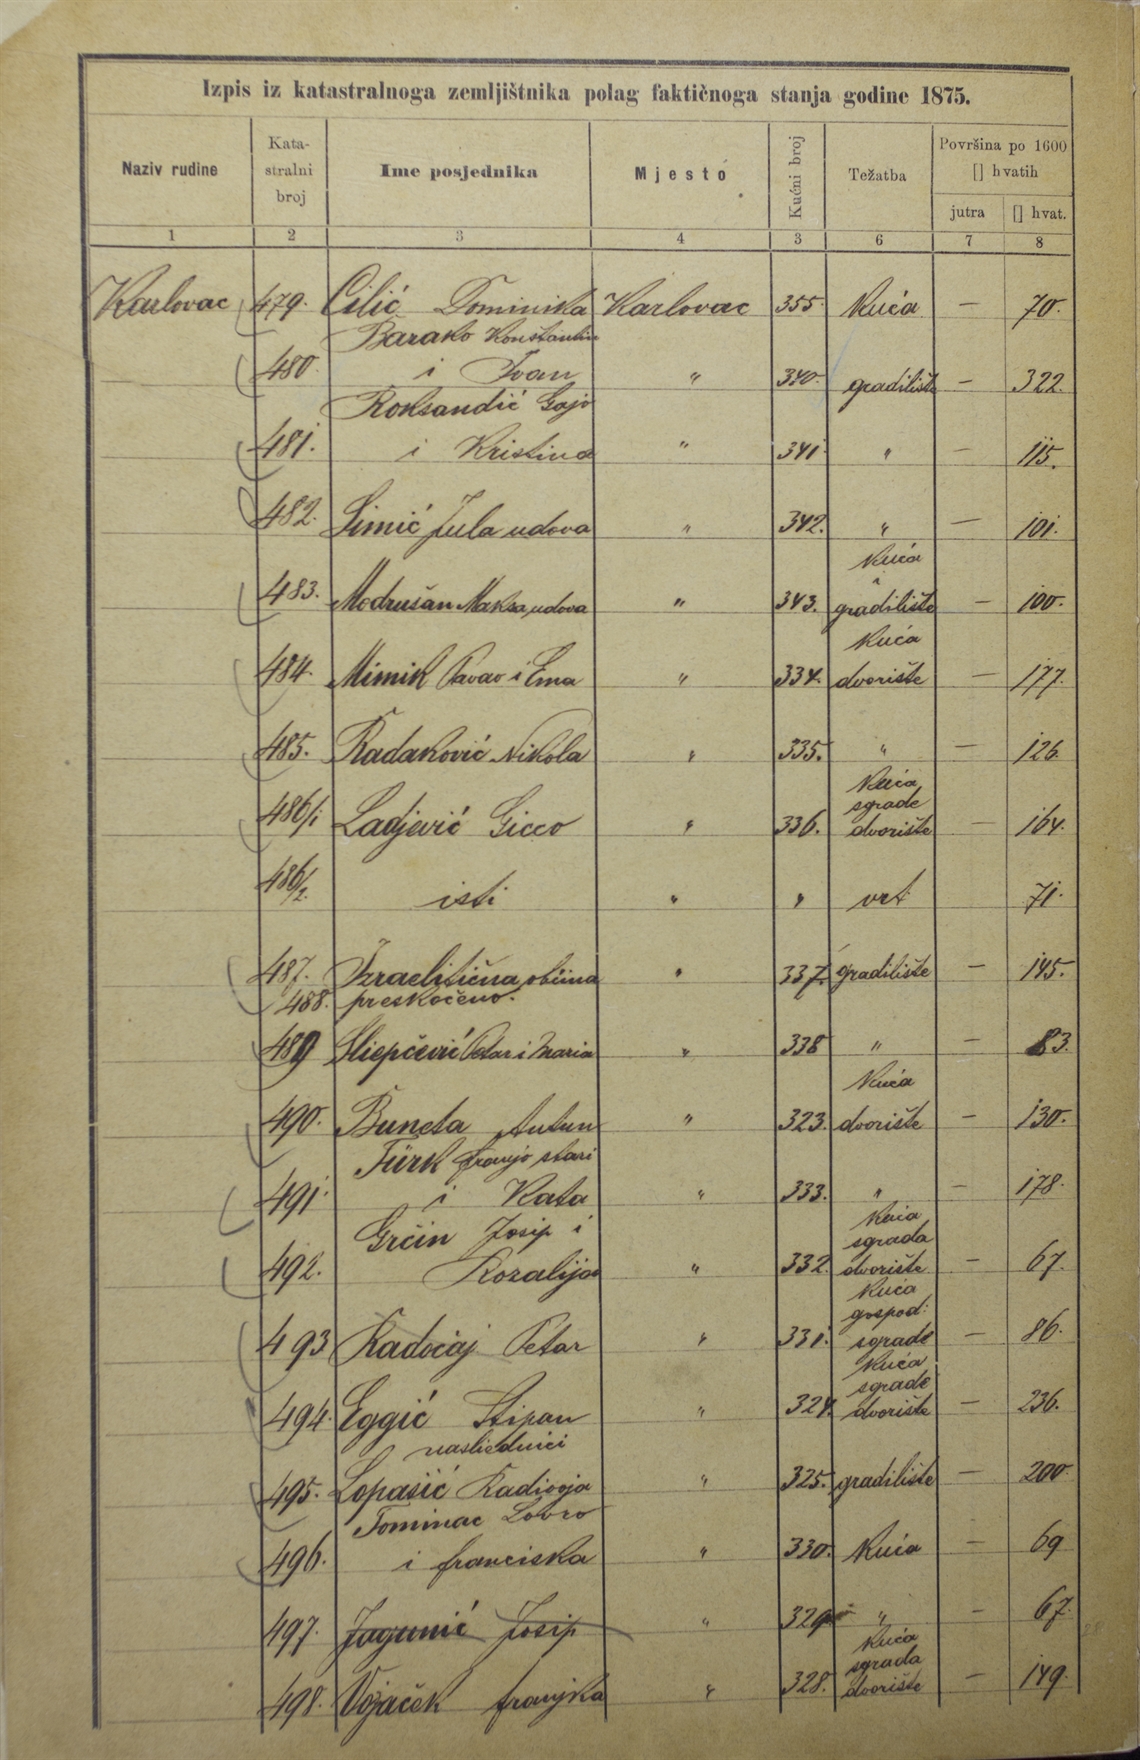 Izpis iz katastralnoga zemljištnika polag faktičnoga stanja godine 1875.
Naziv rudine Kata-stralni broj Ime posjednika Mjesto Kućni broj Težatba Površina po 1600 [] hvatih
jutra [] hvat.
1 2 3 4 3 6 7 8
Karlovac 479. Cilić Dominika Karlovac 355. Kuća — 70.
Barako Konstantin
480. i Ivan " 340. gradilište — 322.
Roksandić Gajo
481. i Kristina " 341. " — 115.
482. Simić Jula udova " 342. " — 101.
Kuća
483. Modrušan Maksa udova " 343. gradilište — 100.
Kuća
484. Mimik Pavao i Ema " 334. dvorište — 177.
485. Radaković Nikola " 335. " — 126.
Kuća
sgrade
486/1 Ladjević Gicco " 336. dvorište — 164.
486/2. isti " " vrt 71.
487. Izraelitična obćina " 337. gradilište — 145.
488. preskočeno.
489 Sliepčević Petar i Maria " 338 " — 83.
Kuća
490. Buneta Antun " 323. dvorište — 130.
Türk franjo stari
491. i Kata " 333. " — 178.
Grčin Josip i Kuća
sgrada
492. Rozalija " 332. dvorište — 67.
Kuća
gospod:
493 Radočaj Petar " 331. sgrade — 86.
Kuća
sgrade
494. Eggić Stipan " 324. dvorište — 236.
nasliednici
495. Lopašić Radivoja " 325. gradilište — 200.
Tominac Lovro
496. i franciska " 330. Kuća — 69
497. Jagunić Josip " 329 " — 67.
Kuća
sgrada
498. Vojaček franjka " 328. dvorište — 149.